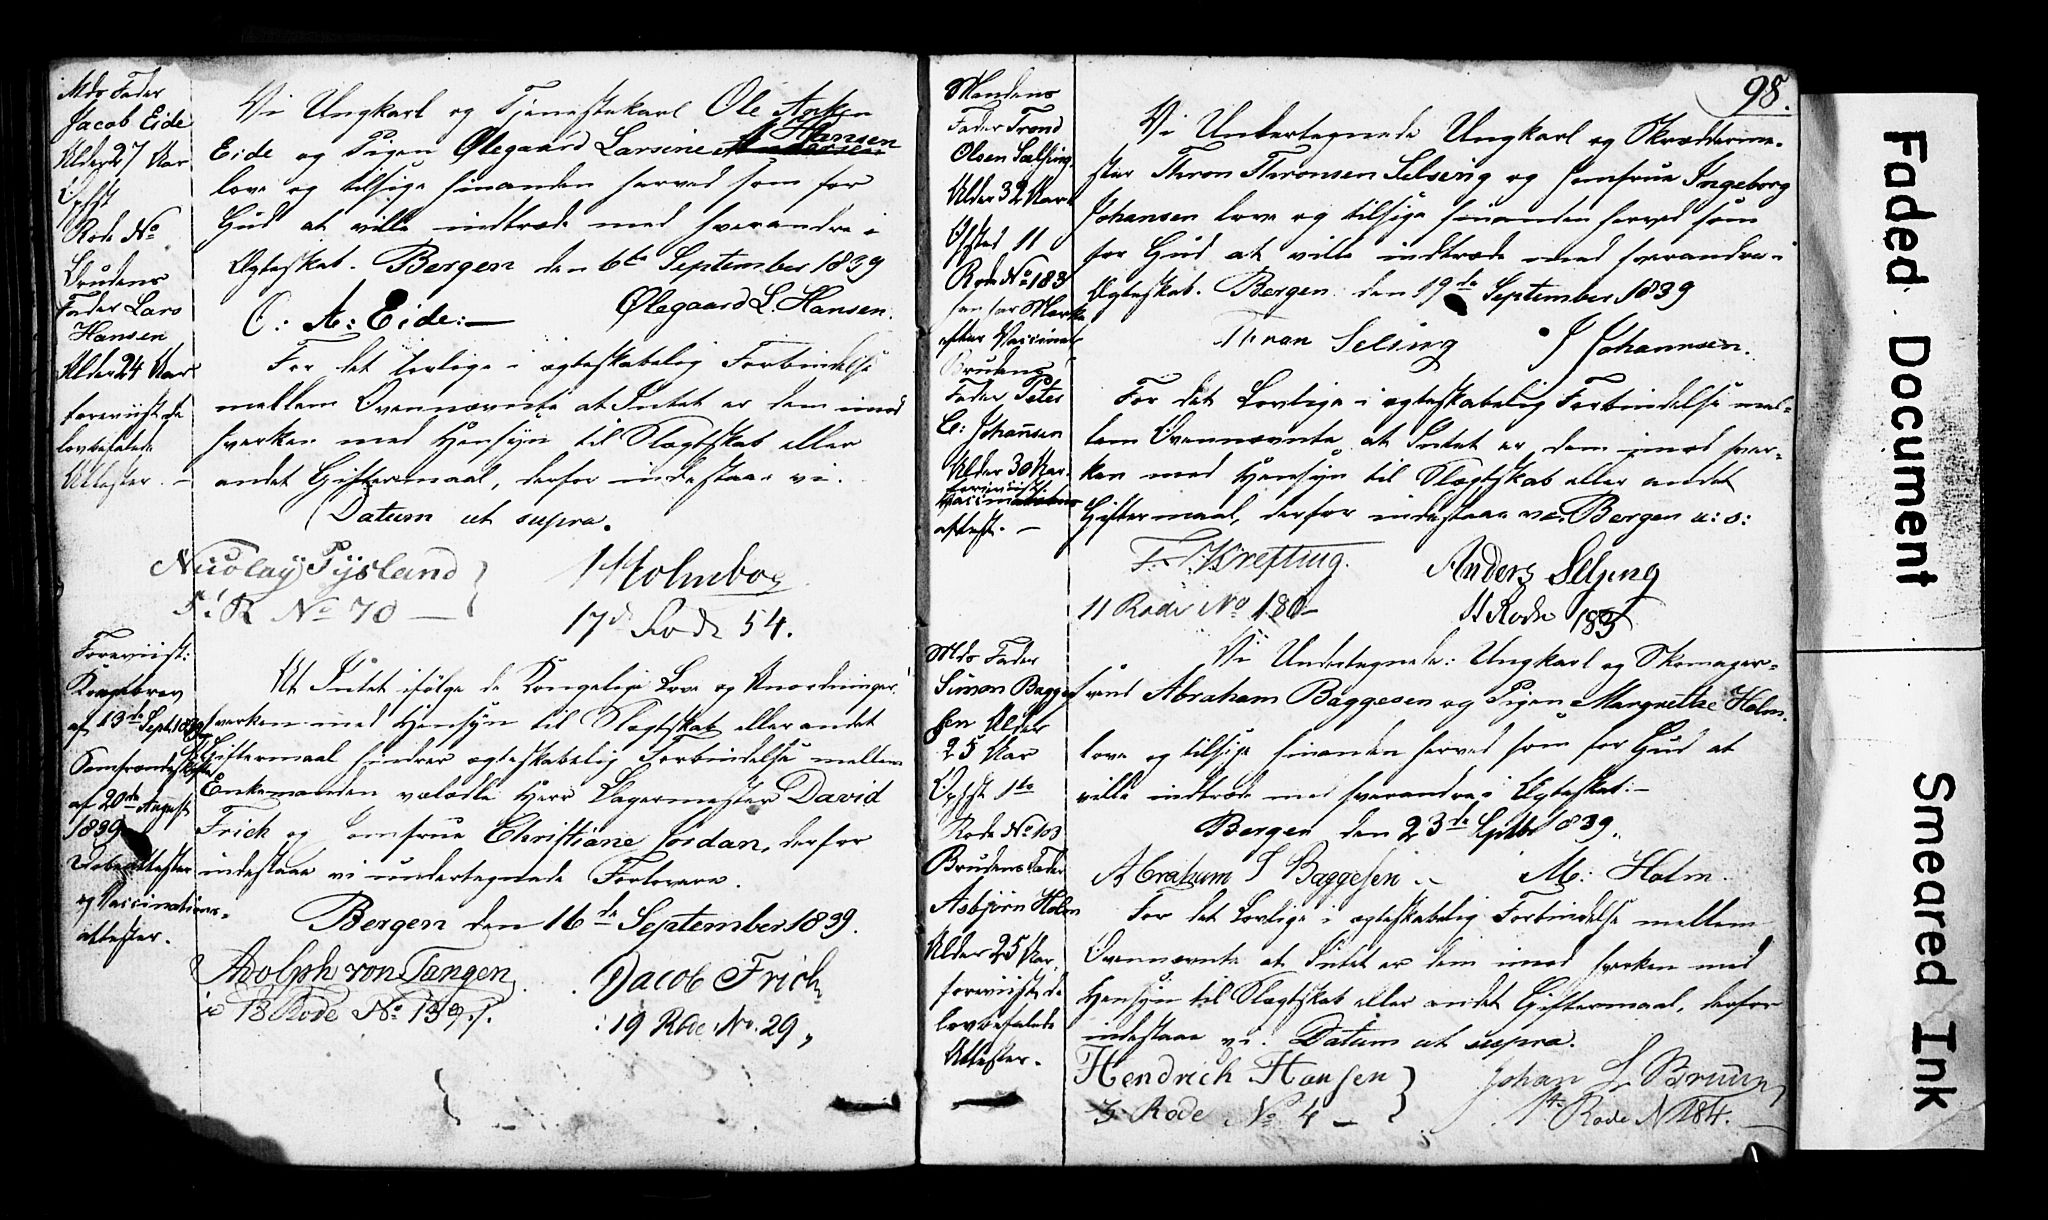 Mds Fader
Jacob Eide
Alder 27 Aar
Opfst
Rode No
Brudens
Fader Lars
Hansen
Alder 24 Aar
foreviist de
lovbefalede
Attester. –
Vi Ungkarl og Tjenestekarl Ole
Hansen
Eide og Pigen Ølegaard Larsine
love og tilsige hinanden herved som for
Gud at ville indtræde med hverandre i
Ægteskab. Bergen den 6te September 1839
O: A: Eide:— Ølegaard L. Hansen.
For det lovlige i ægteskabelig Forbindelse
mellem Ovennævnte at Intet er dem imod
hverken med Hensyn til Slægtskab eller
andet Giftermaal, derfor indestaae vi.
Datum ut supra.
Nicolay Tysland
5. R No 70 —
Holmboe
17d Rode 54.
Foreviist:
Kongebrev
af 13de Sept. 1839
af 20de August
1839
Døbeattester
og Vaccinations-
attester.
At Intet ifølge de Kongelige Love og Anordninger,
hverken med Hensyn til Slægtskab eller andet
Giftermaal hindrer ægteskabelig Forbindelse mellem
Enkemanden velædle Herr Vagermester David
Frich og Jomfrue Christiane Jordan, derfor
indestaae vi undertegnede Forlovere.
Bergen den 16de September 1839.
Adolph von Tangen
i 13 Rode No 139.
Jacob Frich
19 Rode No. 29,
98.
Mandens
Fader Trond
Olsen Sælsing
Alder 32 Aar
Opfsted 11
Rode No 183
han har Mærke
efter Vaccinat:
Brudens
Fader Peter
C: Johañsen
Alder 30 Aar.
foreviist
Vaccinations
attest. —
Vi Undertegnede Ungkarl og Skrædderme-
ster Thron Thronsen Selseng og Jomfrue Ingeborg
Johansen love og tilsige hinanden herved som
for Gud at ville indtræde med hverandre i
Ægteskab. Bergen den 19de September 1839
Thron Selsing J Johannsen.
For det Lovlige i ægteskabelig Forbindelse mel-
lem Ovennævnte at Intet er dem imod hver-
ken med Hensyn til Slægtskab eller andet
Giftermaal, derfor indestaae vi. Bergen u: s:
F. Krefting.
11 Rode No 180—
Anders Selsing
11 Rode 183
Mds Fader
Simon Bagge
sen Alder
25 Aar
Opfst 1te
Rode No 103
Brudens Fader
Asbjørn Holm
Alder 25 Aar
foreviist de
lovbefalede
Attester.
Vi Undertegnede: Ungkarl og Skomager-
svend Abraham Baggesen og Pigen Margrethe Holm.
love og tilsige hinanden herved som for Gud at
ville indtræde med hverandre i Ægteskab:—
Bergen den 23de Septbr 1839.
Abraham S Baggesen M: Holm.
For det Lovlige i ægteskabelig Forbindelse mellem
Ovennævnte at Intet er dem imod hverken med
Hensyn til Slægtskab eller andet Giftermaal, derfor
indestaae vi. Datum ut supra.
Hendrich Hansen
3 Rode No 4 —
Johan L Bruun
1te Rode N 184. —
Faded Document
Smeared Ink